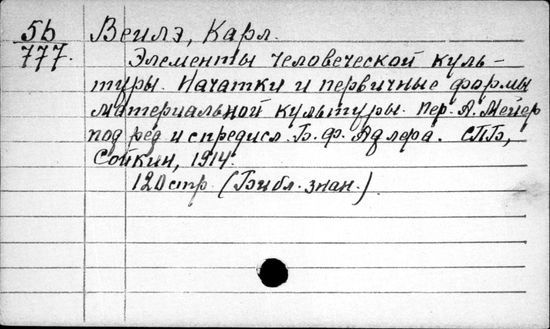 5б Веилэ, Карл.
777. Элементы человеческой куль-
туры. Начатки и первичные формы
материальной культуры. пер. А. Мейер
под ред и с предисл. Б. Ф. Адлера. СПБ,
Сойкин, 1914.
120 стр. (Библ. знан.)